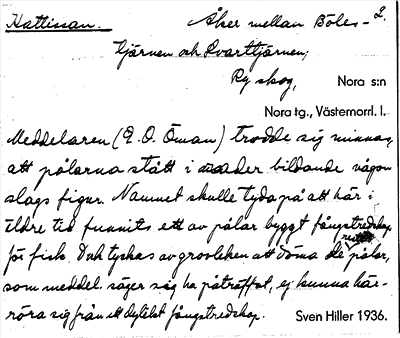 Kattissan. Åker mellan Böles- 2.
tjärnen och Svarttjärnen;
Ry skog, Nora s:n
Nora tg., Västernorrl. l.
Meddelaren (E. O. Öman) trodde sig minnas,
att pålarna stått i rader bildande någon
slags figur. Namnet skulle tyda på att här i
äldre tid funnits ett av pålar byggt fångstredskap
för fisk. Dock tyckas av grovleken att döma de pålar,
som meddel. säger sig ha påträffat, ej kunna här-
röra sig från ett dylikt fångstredskap. Sven Hiller 1936.